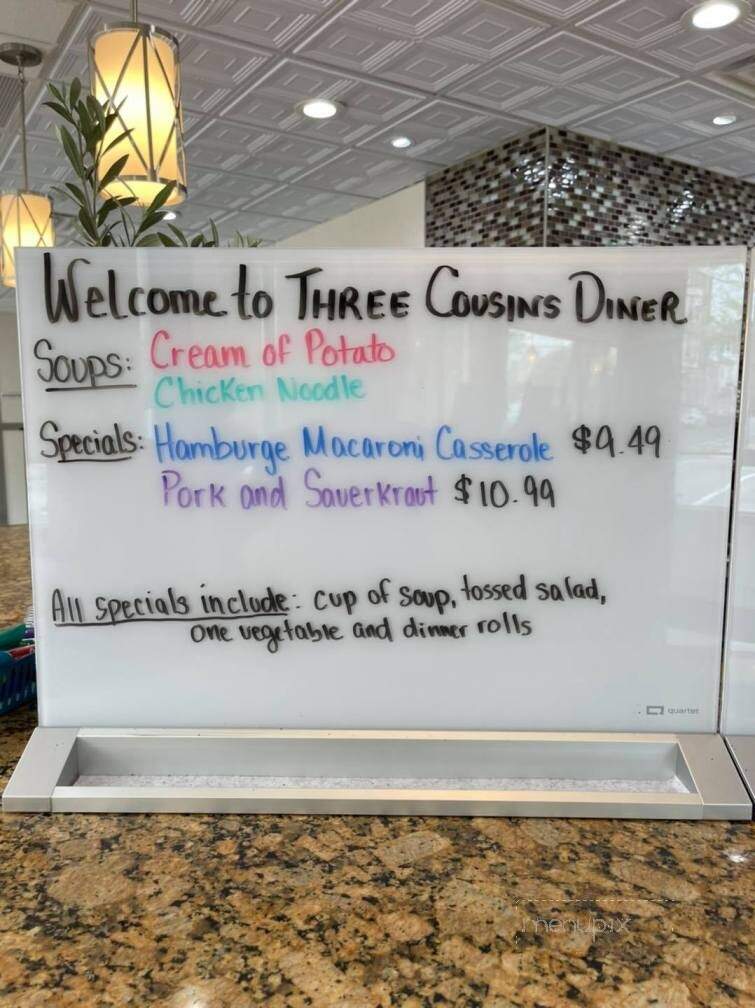 Welcome to THREE COUSINS DINER
Soups: Cream of Potato
Chicken Noodle
Specials: Hamburge Macaroni Casserole $9.49
Pork and Saverkraut $10.99
All specials include: cup of soup, tossed salad,
one vegetable and dinner rolls
quartet
menupix